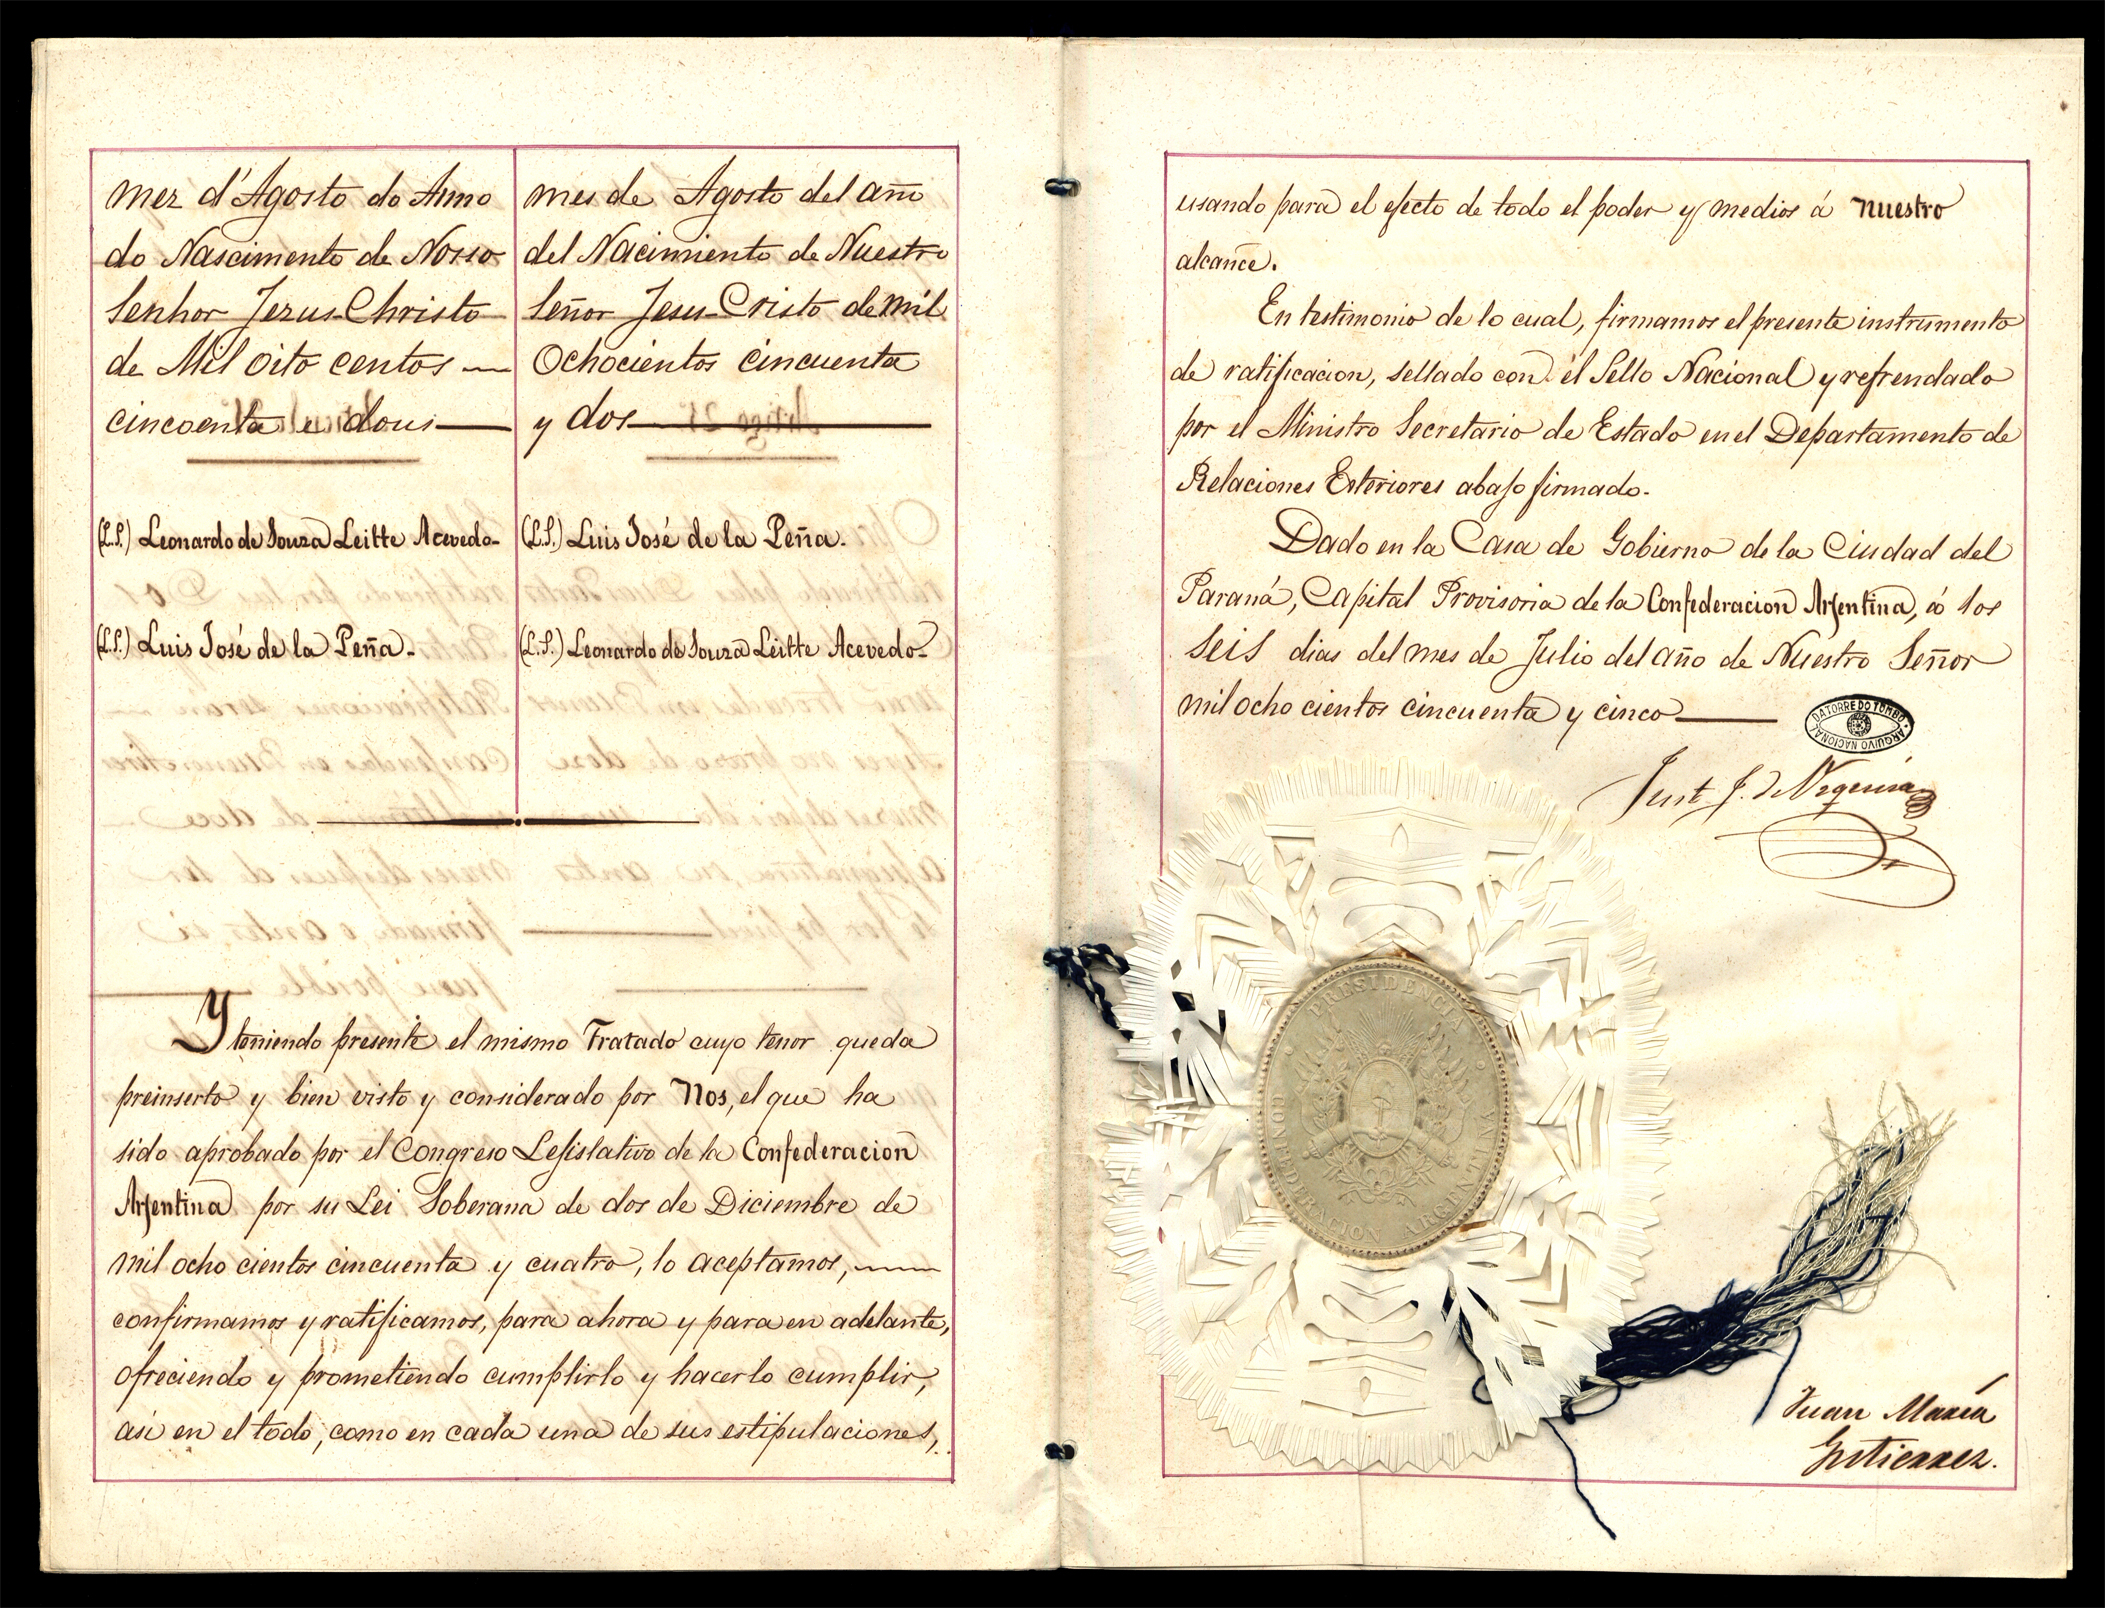 mez d'Agosto do Anno
do Nascimento de Nosso
Senhor Jezus-Christo
de Mil oito centos
cincoenta e dous
mes de Agosto del año
del Nacimiento de Nuestro
Señor Jesu-Cristo de mil
Ochocientos cincuenta
y dos
(L.S.) Leonardo de Souza Leitte Acevedo-
(L.S.) Luis José de la Peña.
(L.S.) Luis José de la Peña.
(L.S.) Leonardo de Souza Leitte Acevedo-
Y teniendo presente el mismo Tratado cuyo tenor queda
preinserto y bien visto y considerado por Nos, el que ha
sido aprobado por el Congreso Lejislativo de la Confederacion
Arjentina por su Lei Soberana de dos de Diciembre de
mil ocho cientos cincuenta y cuatro, lo aceptamos,
confirmamos y ratificamos, para ahora y para en adelante,
ofreciendo y prometiendo cumplirlo y hacerlo cumplir,
asi en el todo, como en cada una de sus estipulaciones,
usando para el efecto de todo el poder y medios á nuestro
alcance.
En testimonio de lo cual, firmamos el presente instrumento
de ratificacion, sellado con el Sello Nacional y refrendado
por el Ministro Secretario de Estado en el Departamento de
Relaciones Esteriores abajo firmado.
Dado en la Casa de Gobierno de la Ciudad del
Paraná, Capital Provisoria de la Confederacion Arjentina, á los
seis dias del mes de Julio del año de Nuestro Señor
mil ocho cientos cincuenta y cinco
DA TORRE DO TOMBO
ARQUIVO NACIONAL
Just J. de Urquiza
PRESIDENCIA
CONFEDERACION ARGENTINA
Juan María
Gutierrez.